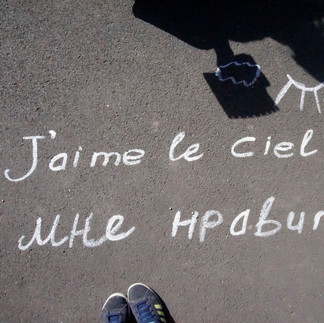 J'aime le ciel
мне нрави